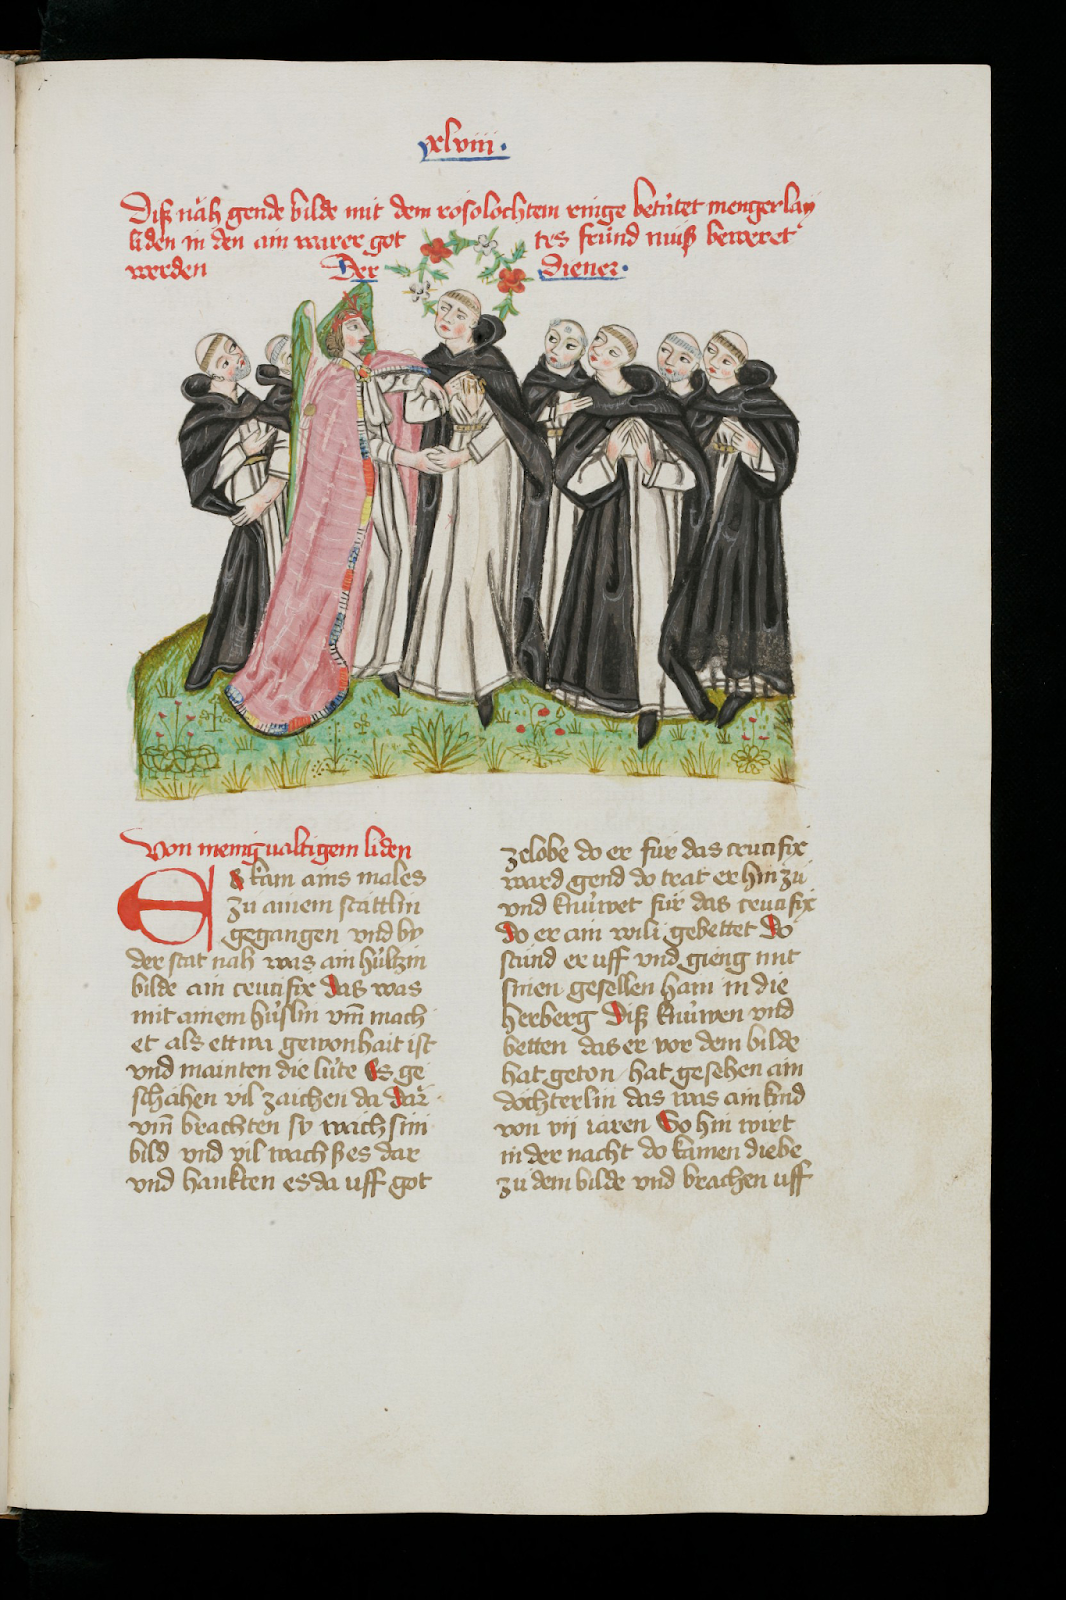 xlviii.
Diß näh gende bilde mit dem rosolochtem ringe betu̍tet mengerlay
liden in den ain warer got tes fru̍nd muiß beweret
werden
Der Diener.
Von menigualtigem liden
Es kam ains males
zu ainem stättlin
gegangen vnd by
der stat nah was ain hu̍ltzin
bilde ain crucifix das was
mit ainem hu̍slin vm̄ mach
et als ettwa gewonhait ist
vnd mainten die lu̍te Es ge
schähen vil zaichen da dar
vm̄ brachten sy wachsini
bild vnd vil wachsses dar
vnd hankten es da uff got
zelobe do er fu̍r das crucifix
ward gend do trat er hin zu
vnd knu̍wet fu̍r das crucifix
do er ain wili gebettet do
stu̍nd er uff vnd gieng mit
sinen gesellen haim in die
herberg Diß knu̍wen vnd
betten das er vor dem bilde
hat geton hat gesehen ain
döchterlin das was ain kind
von vij iaren So hin wirt
in der nacht do kamen diebe
zu dem bilde vnd brachen uff